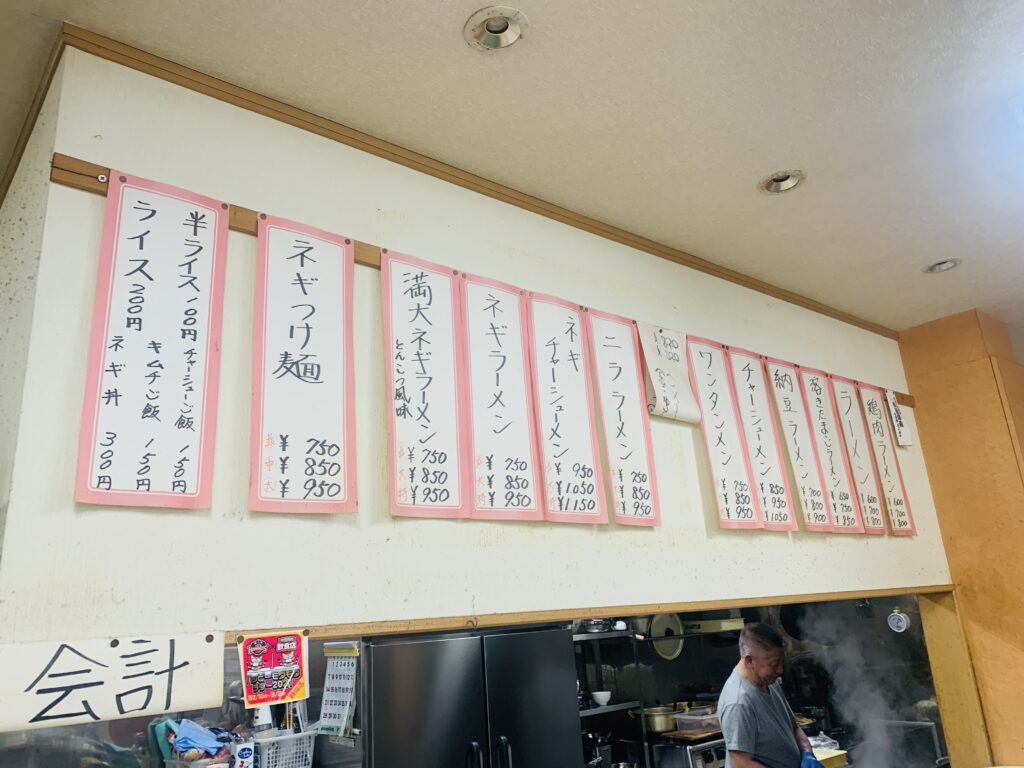 半ライス 100円
チャーシューご飯 150円
ライス 200円
キムチご飯 150円
ネギ丼 300円
ネギつけ麺
並 ¥750
中 ¥850
大 ¥950
満大ネギラーメン
とんこつ風味
¥750
大 ¥850
¥950
ネギラーメン
¥750
大 ¥850
¥950
ネギ
チャーシューメン
¥950
大 ¥1,050
¥1,150
ニララーメン
¥750
¥850
¥950
ワンタンメン
¥750
¥850
¥950
チャーシューメン
¥850
¥950
¥1050
納豆ラーメン
¥700
¥800
¥900
溶きたまごラーメン
¥650
¥750
¥850
ラーメン
¥600
¥700
¥800
鶏肉ラーメン
¥600
¥700
¥800
会計
飲食店